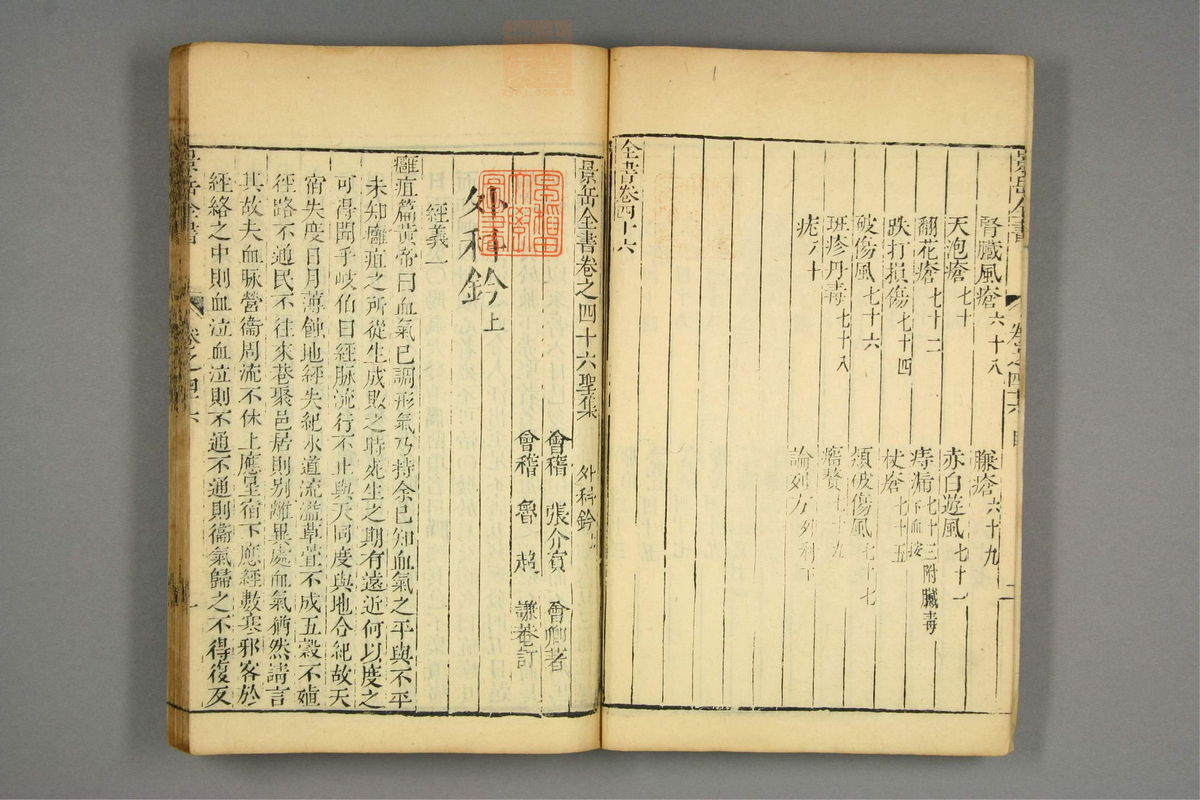 景岳全書 卷之四十六 目 二
腎臟風瘡 六十八 臁瘡 六十九
天泡瘡 七十 赤白遊風 七十一
翻花瘡 七十二 痔漏 七十三 附臟毒
跌打損傷 七十四 杖瘡 七十五
破傷風 七十六 類破傷風 七十七
斑疹丹毒 七十八 瘤贅 七十九
疣 八十 論列方 外科下
全書卷四十六
景岳全書卷之四十六聖集 外科鈐 上
會稽 張介賓 會卿著
會稽 魯超 謙菴訂
早稲田大學圖書
外科鈐 上
經義 一
癰疽篇黃帝曰血氣已調形氣乃持余已知血氣之平與不平
未知癰疽之所從生成敗之時死生之期有遠近何以度之
可得聞乎岐伯曰經脉流行不止與天同度與地合紀故天
宿失度日月薄蝕地經失紀水道流溢草萓不成五穀不殖
徑路不通民不往來巷聚邑居則別離異處血氣猶然請言
其故夫血脉營衛周流不休上應星宿下應經數寒邪客於
經絡之中則血泣血泣則不通不通則衛氣歸之不得復反
景岳全書 卷之四十六 一